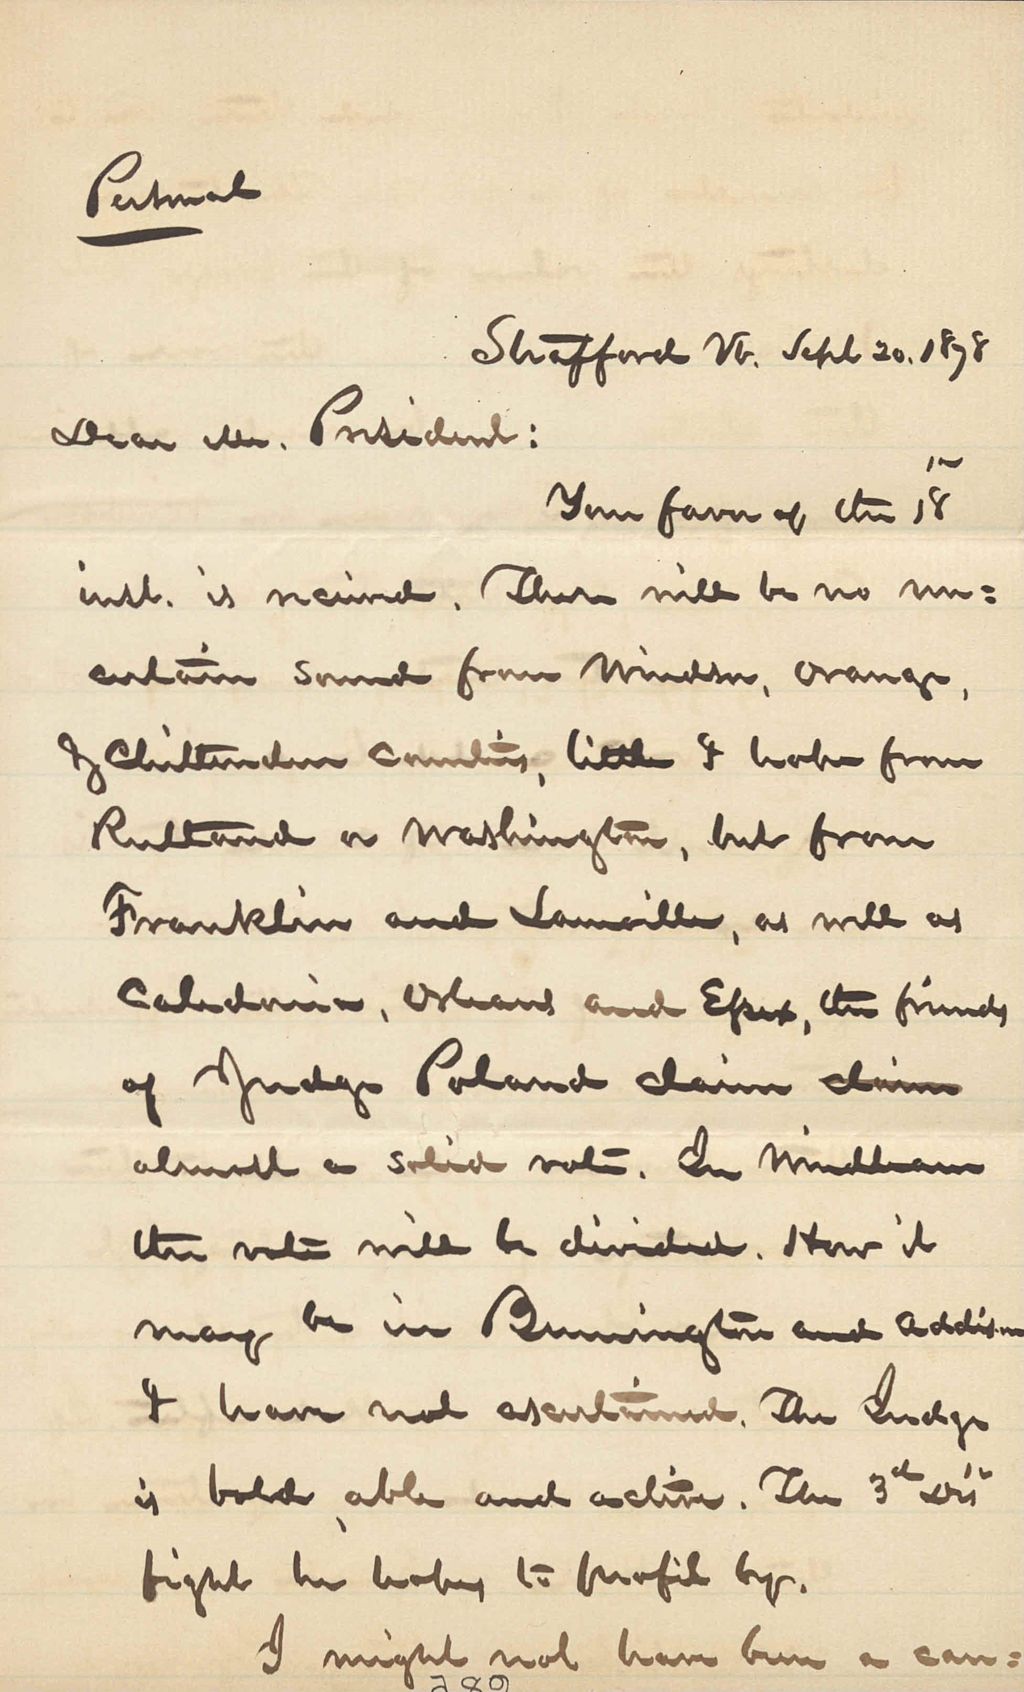 Personal
Strafford Vt. Sept 20. 1878
Dear Mr. President:
Your favor of the 18
inst. is received. There will be no un=
certain sound from Windsor, Orange,
& Chittenden Counties, little I hope from
Rutland or Washington, but from
Franklin and Lamoille, as well as
Caledonia, Orleans and Essex, the friends
of Judge Poland claim claim
almost a solid vote. In Windham
the vote will be divided. How it
may be in Bennington and Addison
I have not ascertained. The Judge
is bold, able and active. The 3d Dist
fight he hopes to profit by.
I might not have been a can=
289